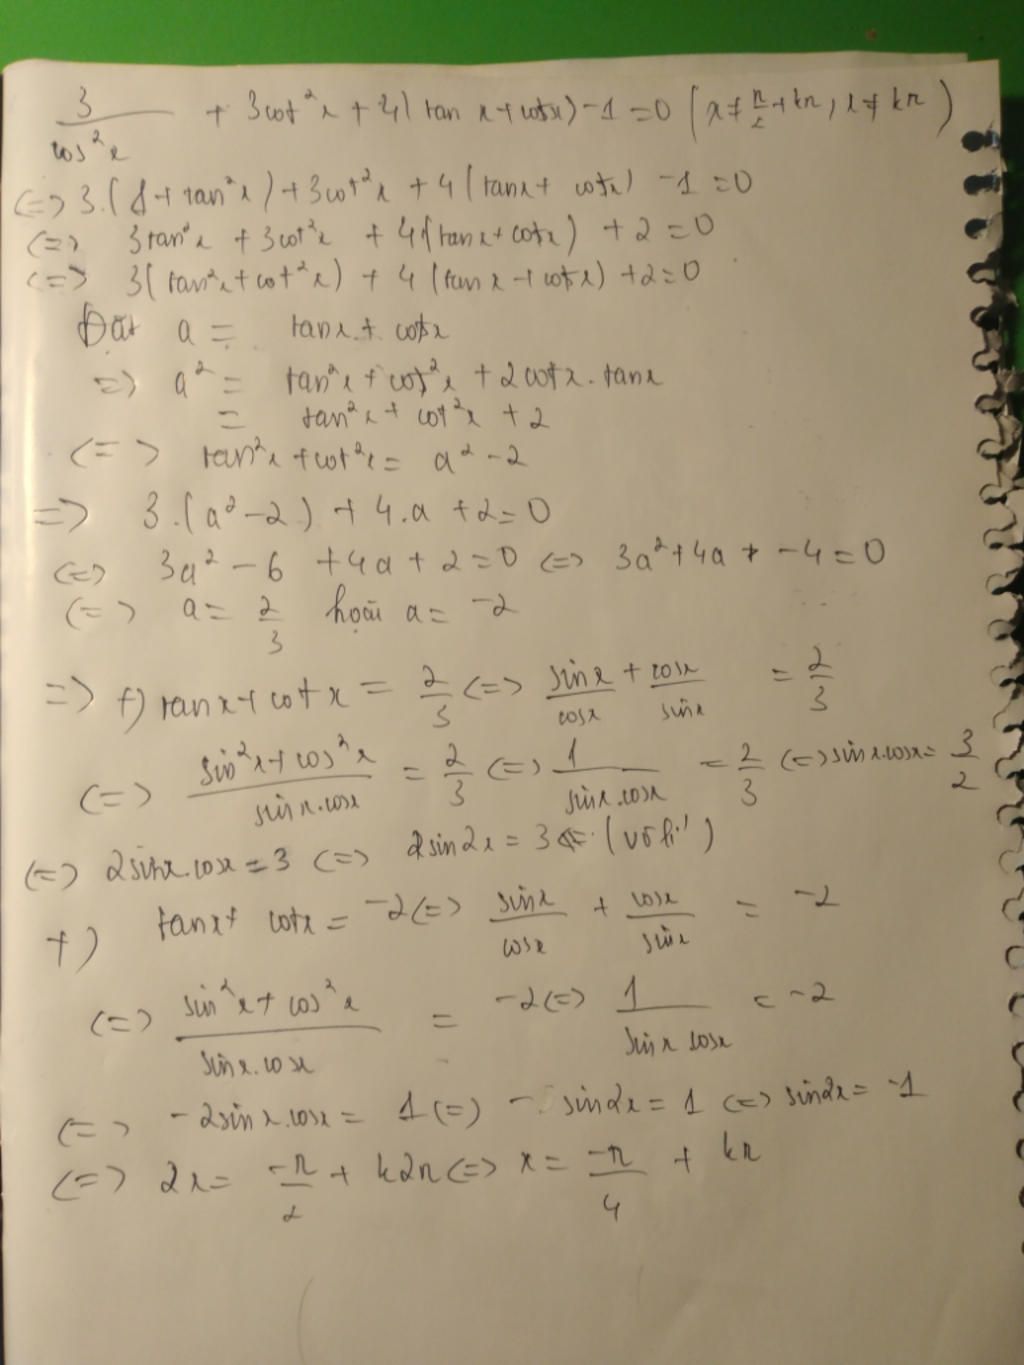 3/cos²x + 3cot²x + 4(tan x + cotx) - 1 = 0 (x ≠ π/2 + kπ, x ≠ kπ)
<=> 3.(1 + tan²x) + 3cot²x + 4(tanx + cotx) - 1 = 0
<=> 3tan²x + 3cot²x + 4(tanx + cotx) + 2 = 0
<=> 3(tan²x + cot²x) + 4(tan x + cotx) + 2 = 0
Đặt a = tanx + cotx
=> a² = tan²x + cot²x + 2cotx.tanx
= tan²x + cot²x + 2
<=> tan²x + cot²x = a² - 2
=> 3.(a² - 2) + 4.a + 2 = 0
<=> 3a² - 6 + 4a + 2 = 0 <=> 3a² + 4a + - 4 = 0
<=> a = 2/3 hoặc a = -2
=> +) tanx + cot x = 2/3 <=> sinx/cosx + cosx/sinx = 2/3
<=> (sin²x + cos²x)/(sinx.cosx) = 2/3 <=> 1/(sinx.cosx) = 2/3 <=> sinx.cosx = 3/2
<=> 2sinx.cosx = 3 <=> 2sin2x = 3 (vô lí)
+) tanx + cotx = -2 <=> sinx/cosx + cosx/sinx = -2
<=> (sin²x + cos²x)/(sinx.cosx) = -2 <=> 1/(sinx cosx) = -2
<=> -2sinx.cosx = 1 <=> - sin2x = 1 <=> sin2x = -1
<=> 2x = -π/2 + k2π <=> x = -π/4 + kπ